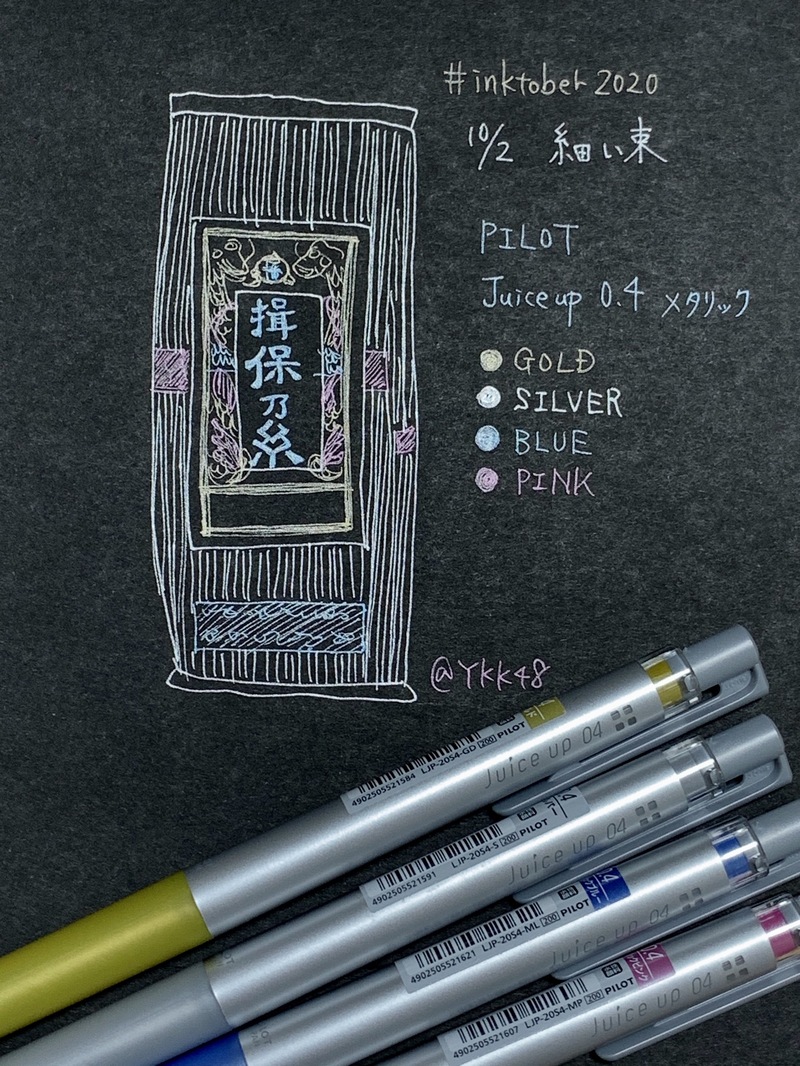 #inktober 2020
10/2 細い束
PILOT
Juice up 0.4 メタリック
GOLD
SILVER
BLUE
PINK
揖
保
乃
糸
@YKK48
4902505521584 LJP-20S4-GD 200 PILOT
Juice up 04
4902505521591 LJP-20S4-S 200 PILOT
Juice up 04
4902505521621 LJP-20S4-ML 200 PILOT
Juice up 04
4902505521607 LJP-20S4-MP 200 PILOT
Juice up 04